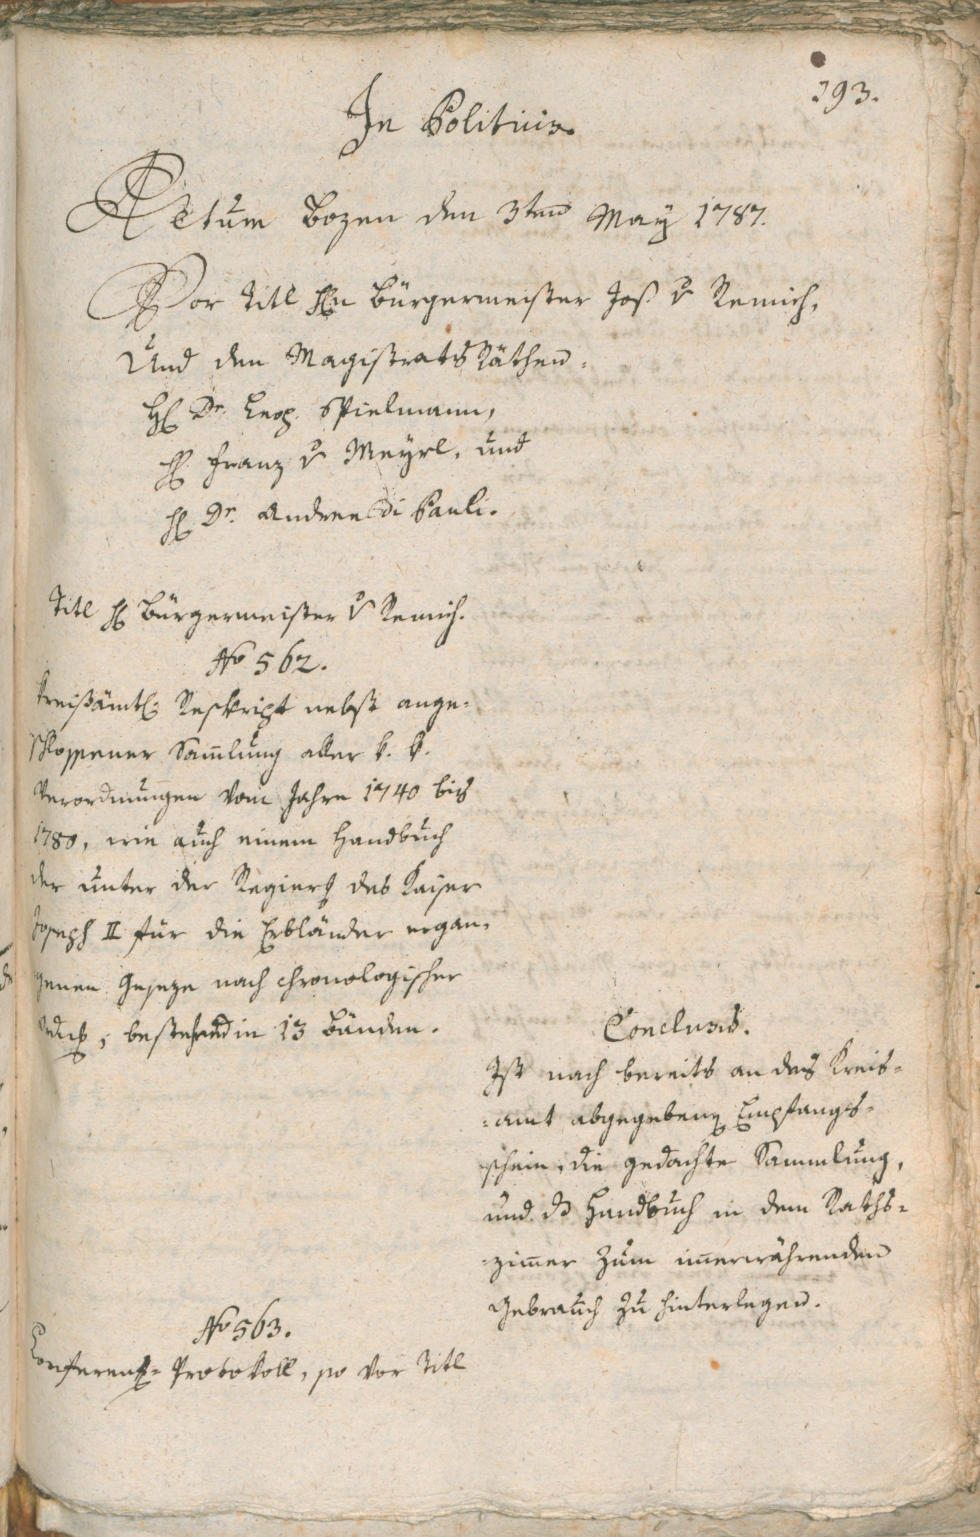 193.
In Politicis.
Actum Bozen den 3ten May 1787.
Vor Titl Hn Bürgermeister Jos v Remich,
Und den Magistrats Räthen.
H Dr. Leop. Spielmann,
H Franz v Meyrl, und
H Dr. Andree Di Pauli.
Titl H Bürgermeister v Remich.
No 562.
Kreisämtl. Reskript nebst ange-
schlossener Sam̅lung aller k. k.
Verordnungen vom Jahre 1740 bis
1780, wie auch einem Handbuch
der unter der Regierg des Kaiser
Joseph II für die Erbländer ergan-
genen Geseze nach chronologischer
Ordng, bestehend in 13 Bänden.
Conclusis.
Ist nach bereits an das Kreis-
-amt abgegebenen Empfangs-
schein, die gedachte Sammlung,
und ds Handbuch in dem Raths-
-zim̅er zum im̅erwährenden
Gebrauch zu hinterlegen.
No 563.
Konferenz-Protokoll, so vor Titl